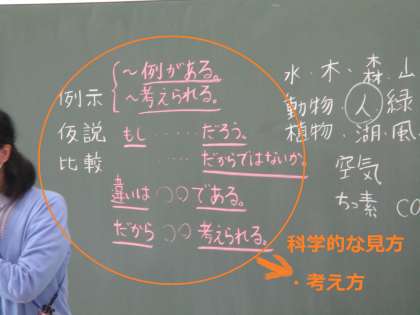 例示
～例がある。
～考えられる。
仮説 もし ・・・・ だろう。
比較 ・・・・ だからではないか。
違いは ○○である。
だから ○○考えられる。
水・木・森・山
動物・人 緑
植物・湖・風
空気
ちっ素 CO
科学的な見方
・考え方